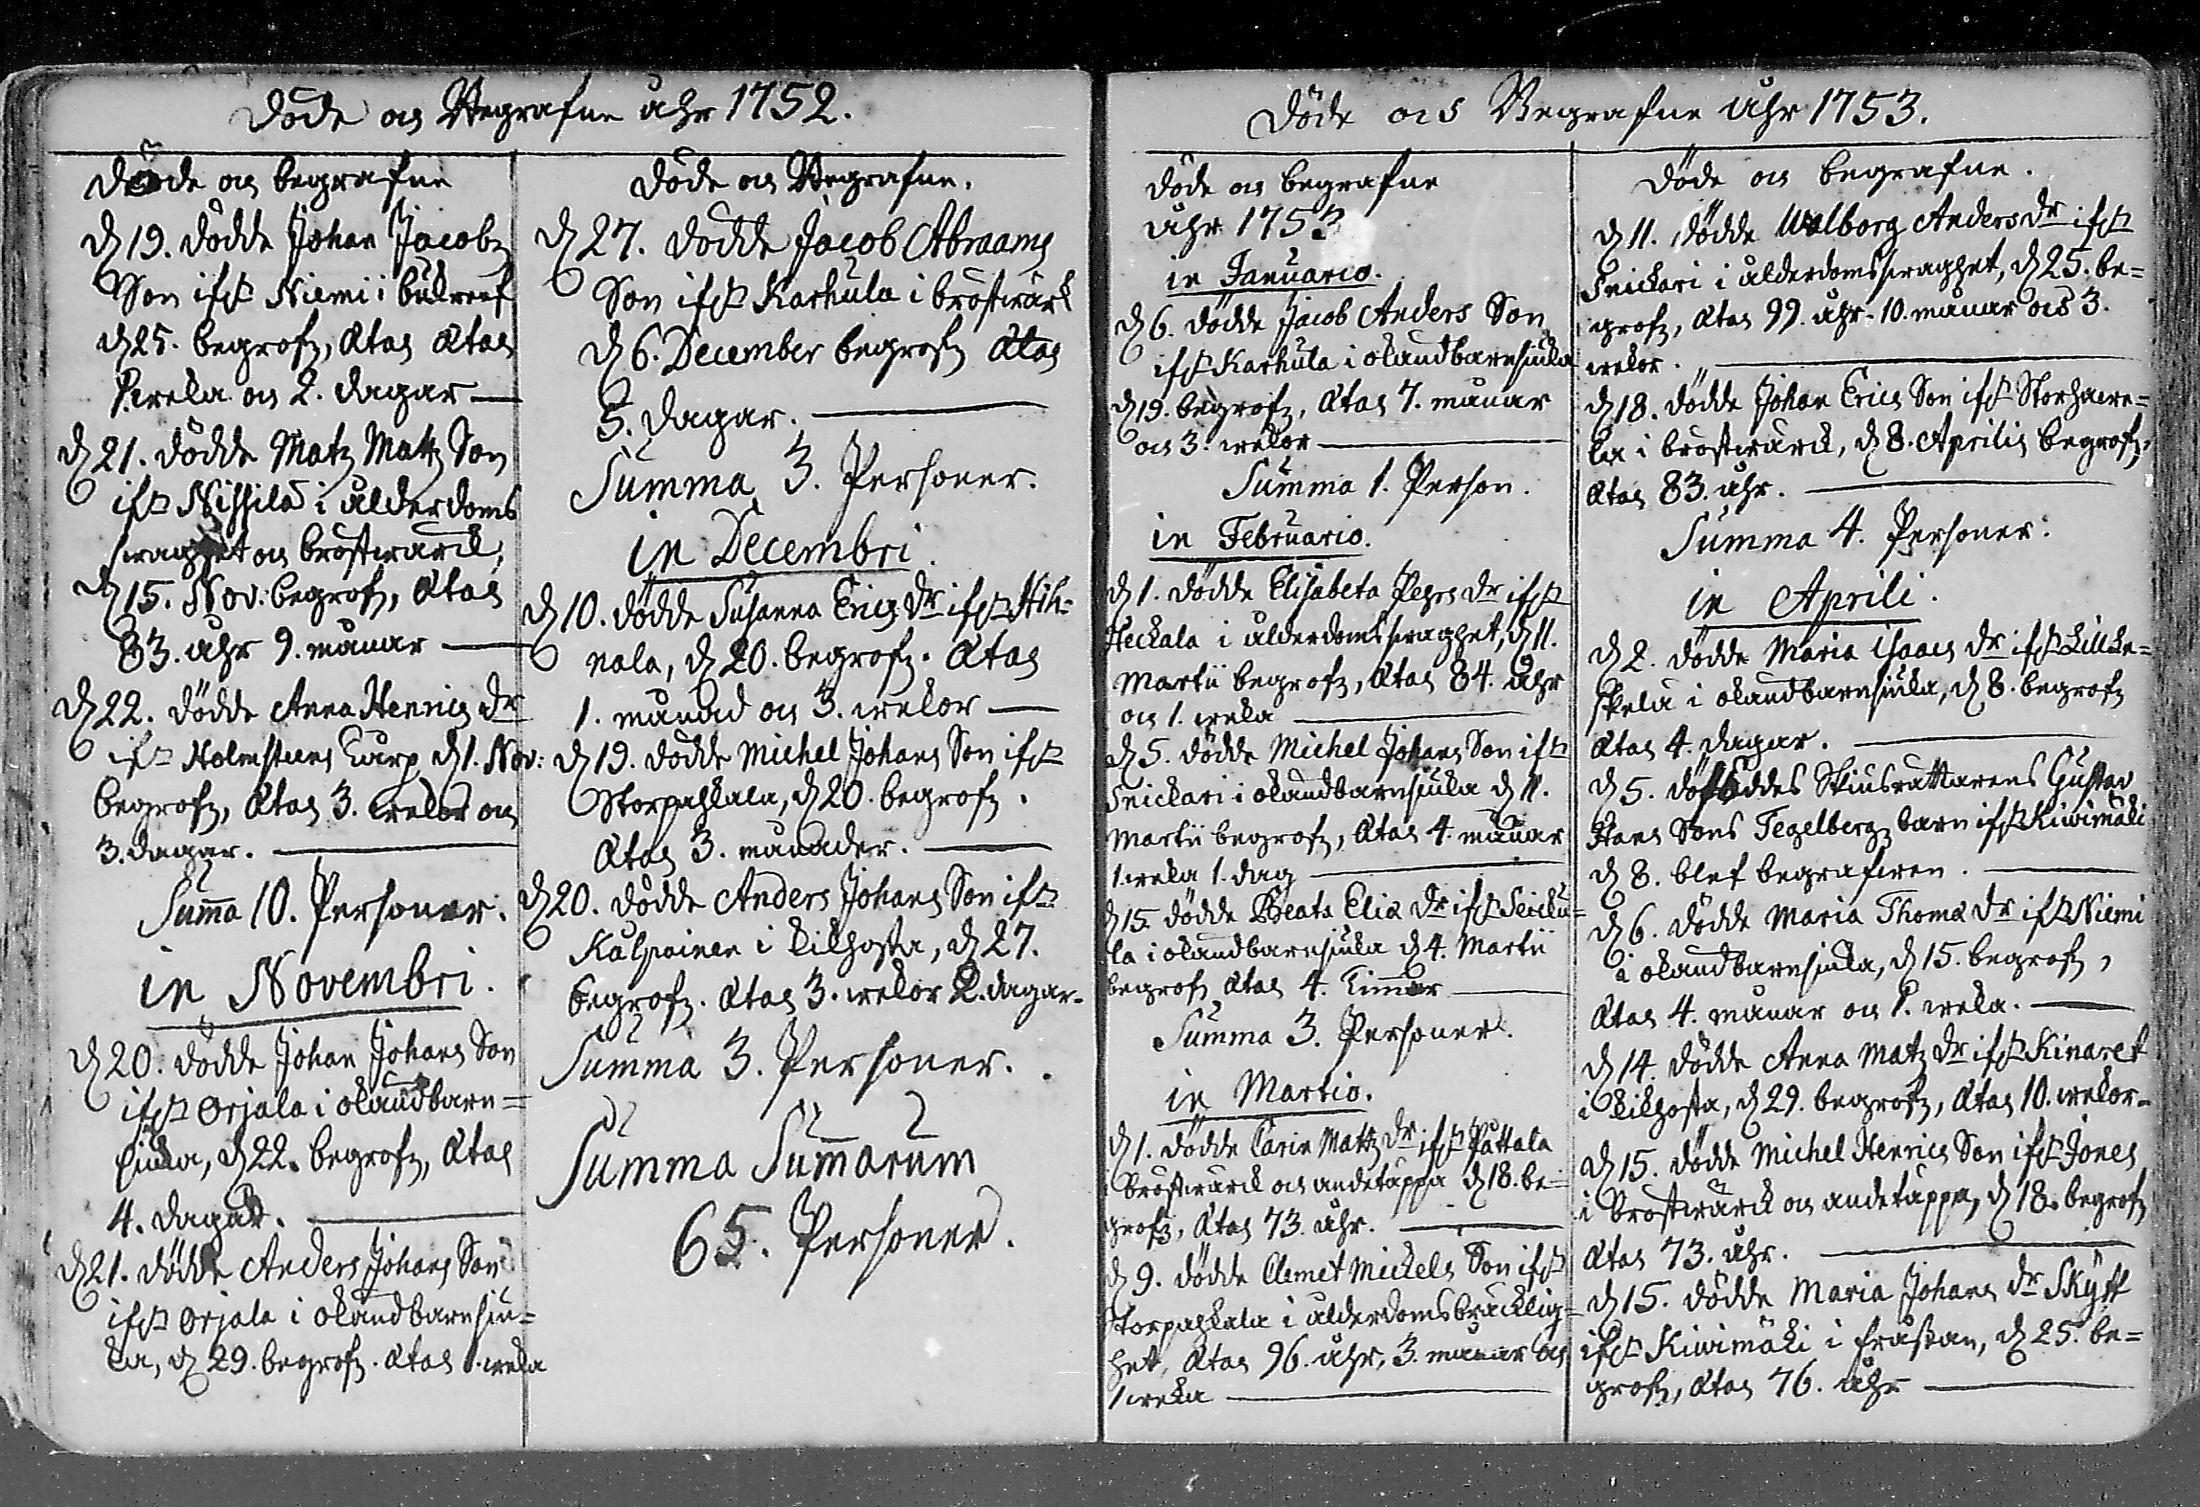 Döde och Begrafne åhr 1752.
Döde och begrafne
d 19. dödde Johan Jacobs
Son ifrå Niemi i bukreef
d 25. begrofs, Ætas Ætas
1. weka och 2. dagar
d 21. dödde Matz Mattz Son
ifrå Nissilä i ålderdoms
swaghet och bröstwärck,
d 15. Nov: begrofs, Ætas
83. åhr 9. månar
d 22. dödde Anna Henrics dr
ifrå Holmsteens torp d 1. Nov:
begrofs, Ætas 3. wekor och
3. dagar.
Summa 10. Personer.
in Novembri.
d 20. dödde Johan Johans Son
ifrå Orjala i okandbarn=
siuka, d 22. begrofs, Ætas
4. dagar.
d 21. dödde Anders Johans Son
ifrå Orjala i okandbarnsiu=
ka, d 29. begrofs. Ætas 1. weka
Döde och Begrafne.
d 27. dödde Jacob Abraams
Son ifrå Karhula i bröstwärk
d 6. December begrofs Ætas
5. dagar.
Summa 3. Personer.
in Decembri
d 10. dödde Susanna Erics dr ifrå Hih=
nala, d 20. begrofs. Ætas
1. månad och 3. wekor
d 19. dödde Michel Johans Son ifrå
Storpahkala, d 20. begrofs.
Ætas 3. månader.
d 20. dödde Anders Johans Son ifrå
Kulpainen i kikhosta, d 27.
begrofs. Ætas 3. wekor 2. dagar.
Summa 3. Personer.
Summa Summarum
65. Personer.
Döde och Begrafne åhr 1753.
Döde och begrafne
åhr 1753
in Januario.
d 6. dödde Jacob Anders Son
ifrå Karhula i okandbarnsiuka
d 19. begrofs, Ætas 7. månar
och 3. wekor
Summa 1. Person.
in Februario.
d 1. dödde Elisabeta Pehrs dr ifrå
Heckala i ålderdomsswaghet, d 11.
Martii begrofs, Ætas 84. åhr
och 1. weka
d 5. dödde Michel Johans Son ifrå
Snickari i okandbarnsiuka d 11.
Martii begrofs, Ætas 4. månar
1. weka 1. dag
d 15. dödde Beata Eliæ dr ifrå Seicku=
la i okandbarnsiuka d 4. Martii
begrofs Ætas 4. Timar
Summa 3. Personer.
in Martio.
d 1. dödde Carin Mattz dr ifrå Pättälä
i bröstwärck och andetäppa d 18. be=
grofs, Ætas 73. åhr.
d 9. dödde Clemet Mickels Son ifrå
Storpahkala i ålderdomsbräcklig=
het, Ætas 96. åhr, 3. månar och
1 weka
Döde och begrafne.
d 11. dödde Walborg Anders dr ifrå
Snickari i ålderdomsswaghet, d 25. be=
grofs, Ætas 99. åhr. 10. månar och 3.
wekor.
d 18. dödde Johan Erics Son ifrå Storhawe=
la i bröstwärck, d 8. Aprilis begrofs,
Ætas 83. åhr.
Summa 4. Personer.
in Aprili.
d 2. dödde Maria Isaacs dr ifrå Killke=
skela i okandbarnsiuka, d 8. begrofs
Ætas 4. dagar.
d 5. döföddes Skiusrättarens Gustav
Hans Sons Tegelbergz barn ifrå Kiwimäki
d 8. blef begrafwen.
d 6. dödde Maria Thomæ dr ifrå Niemi
i okandbarnsiuka, d 15. begrofs,
Ætas 4. månar och 1. weka.
d 14. dödde Anna Matz dr ifrå Kinaret
i kikhosta, d 29. begrofs, Ætas 10. wekor.
d 15. dödde Michel Henrics Son ifrå Jones
i bröstwärck och andetäppa, d 18. begrofs
Ætas 73. åhr.
d 15. dödde Maria Johans dr Skytt
ifrå Kiwimäki i frassan, d 25. be=
grofs, Ætas 76. åhr